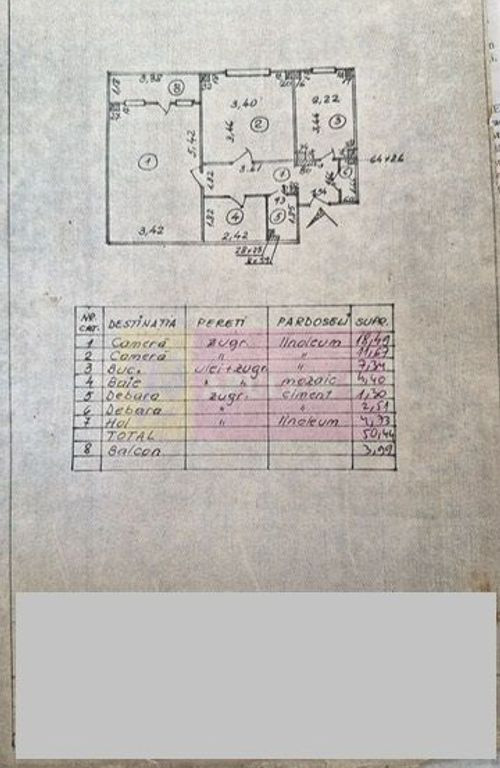 3,38
8
3,40
2,22
3,46
3,44
2
3
5,42
1
3,61
1
1,82
1,82
4
5
3,42
2,42
NR. CRT. DESTINATIA PERETI PARDOSELI SUPR.
1 Cameră zugr. linoleum 18,49
2 Cameră " " 11,67
3 Buc. ulei+zugr. " 7,34
4 Baie " " mozaic 4,40
5 Debara zugr. ciment 1,30
6 Debara " " 2,51
7 Hol " linoleum 4,73
TOTAL 50,44
8 Balcon 3,99